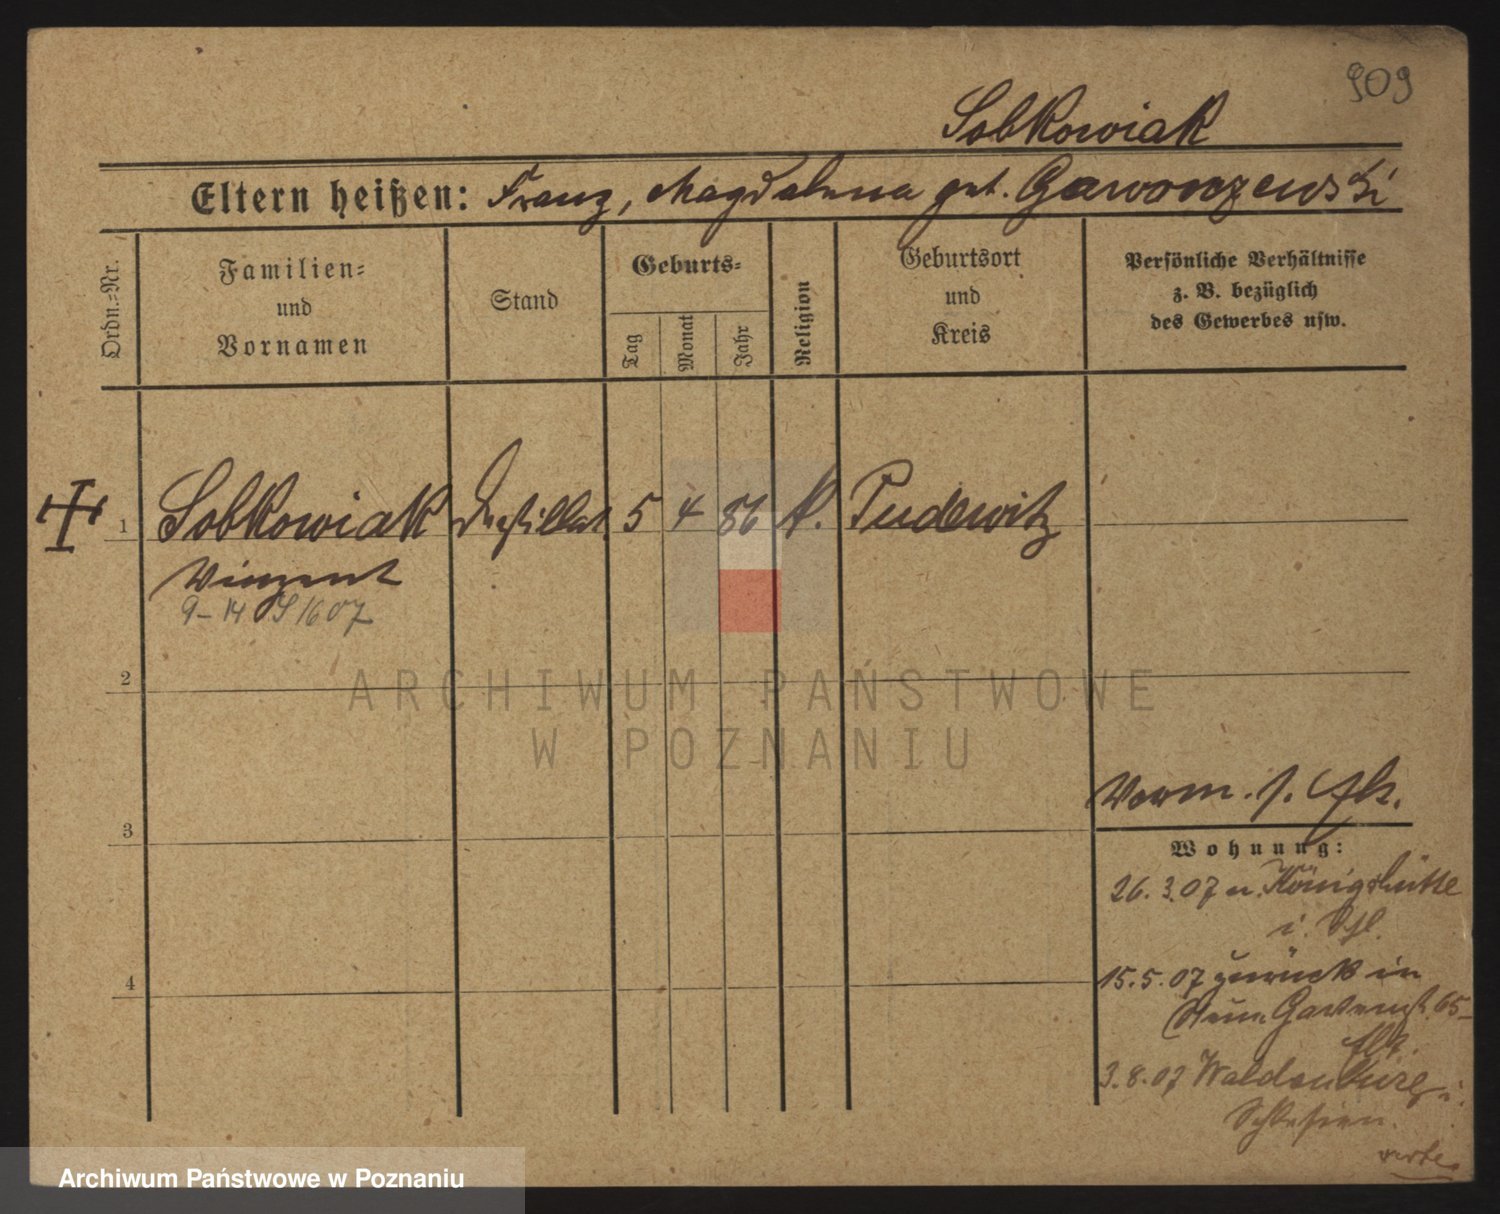 909
Sobkowiak
Eltern heißen: Franz, Magdalena geb. Gawronzewski
Ordn.=Nr.
Familien=
und
Vornamen
Stand
Geburts=
Tag
Monat
Jahr
Religion
Geburtsort
und
Kreis
Persönliche Verhältnisse
z. B. bezüglich
des Gewerbes usw.
1 Sobkowiak Destillat. 5 4 86 k. Pudewitz
Vinzent
9-14 1607
2
ARCHIWUM PAŃSTWOWE
W POZNANIU
3
Verm. s.
Wohnung:
26.3.07 n. Königshütte
i. Schl.
4
15.5.07 zurück in
Gartenst. 65
3.8.07 Waldenburg i.
Schlesien.
verte
Archiwum Państwowe w Poznaniu